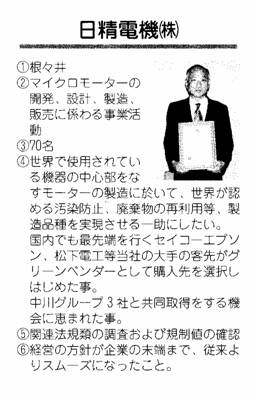 日精電機㈱
①根々井
②マイクロモーターの
開発、設計、製造、
販売に係わる事業活
動
③70名
④世界で使用されてい
る機器の中心部をな
すモーターの製造に於いて、世界が認
める汚染防止、廃棄物の再利用等、製
造品種を実現させる一助にしたい。
国内でも最先端を行くセイコーエプソ
ン、松下電工等当社の大手の客先がグ
リーンベンダーとして購入先を選択し
はじめた事。
中川グループ3社と共同取得をする機
会に恵まれた事。
⑤関連法規類の調査および規制値の確認
⑥経営の方針が企業の末端まで、従来よ
りスムーズになったこと。